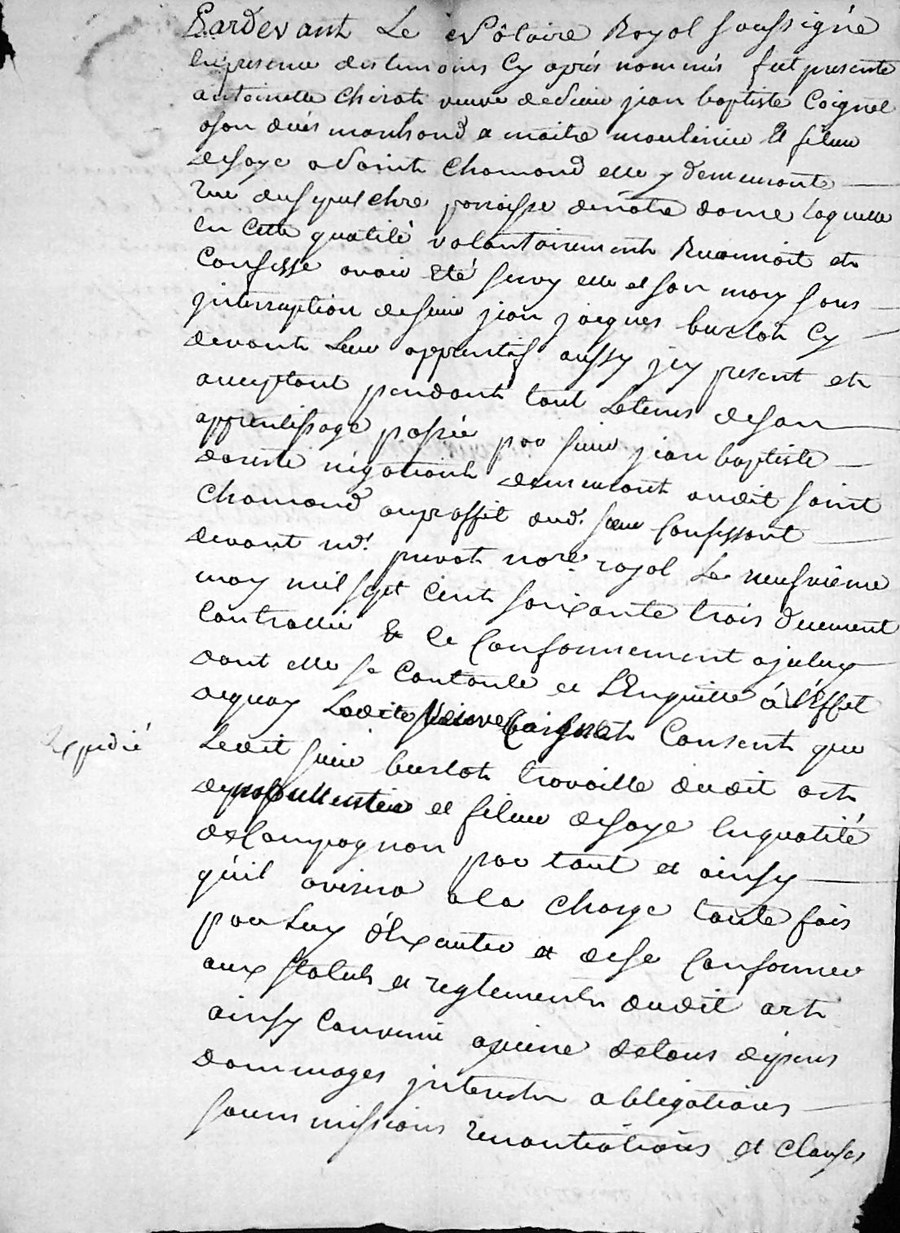 Pardevant Le Nôtaire Royal soussigné
En presence des temoins Cy aprés nommés fut presente
antoinette Chirat veuve de sieur jean baptiste Coignet
vivant marchand & maitre moulinier et fileur
desoye a Saint Chamond elle y demeurante
rue du sepulchre paroisse de nôtre dame laquelle
en cette qualité volontairement Reconnoit et
Confesse avoir Eté servy elle et son mary sans
jnterruption de sieur jean jacques burlat Cy
devant Leur apprentif aussy jcy present et
acceptant pendant tout Letems deson
apprentissage passée par sieur jean baptiste
negotiant demeurant audit saint
Chamond auproffit dud. sieur Confessant
devant me. prevot nore royal Le neufvieme
may mil sept Cent soixante trois duement
Controllée & ce Conformement ajceluy
dont elle se Contente et L'En quitte á L'Effet
dequoy Ladite veuve Coignet Consent que
Expedié
Ledit sieur burlat travaille dudit art
de et fileur desoye En qualité
de Compagnon par tout et ainsy
qu'il avisera ala Charge toute fois
par Luy d'Executer et dese Conformer
aux statuts et reglements dudit art
ainsy Convenu apeine detous depens
dommages jnterets obligations
soummissions renontiations et clauses